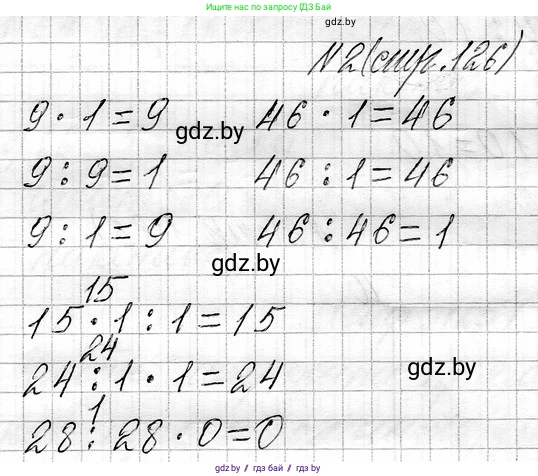 Присоединяйся к нам по запросу [Г]ДЗ Бай
gdz.by
№2(стр.126)
9 · 1 = 9 46 · 1 = 46
gdz.by
9 : 9 = 1 46 : 1 = 46
9 : 1 = 9 46 : 46 = 1
gdz.by
15
15 · 1 : 1 = 15
24
24 : 1 · 1 = 24
gdz.by
1
28 : 28 · 0 = 0
gdz.by / гдз бай / гдз by